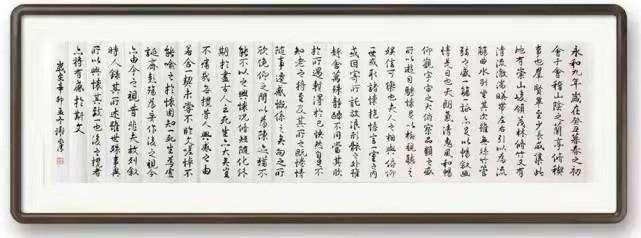 永和九年歲在癸丑暮春之初
會于會稽山陰之蘭亭脩稧
事也群賢畢至少長咸集此
地有崇山峻領茂林脩竹又有
清流激湍暎帶左右引以為流
觴曲水列坐其次雖無絲竹管
弦之盛一觴一詠亦足以暢叙幽
情是日也天朗氣清惠風和暢
仰觀宇宙之大俯察品類之盛
所以遊目騁懷足以極視聽之
娛信可樂也夫人之相與俯仰
一世或取諸懷抱悟言一室之內
或因寄所託放浪形骸之外雖
趣舍萬殊靜躁不同當其欣
於所遇暫得於己快然自足不
知老之將至及其所之既惓情
隨事遷感慨係之矣向之所
欣俛仰之閒以為陳迹猶不
能不以之興懷況脩短隨化終
期於盡古人云死生亦大矣豈
不痛哉每攬昔人興感之由
若合一契未嘗不臨文嗟悼不
能喻之於懷固知一死生為虛
誕齊彭殤為妄作後之視今
亦由今之視昔悲夫故列叙
時人錄其所述雖世殊事異
所以興懷其致一也後之攬者
亦將有感於斯文
歲在辛卯